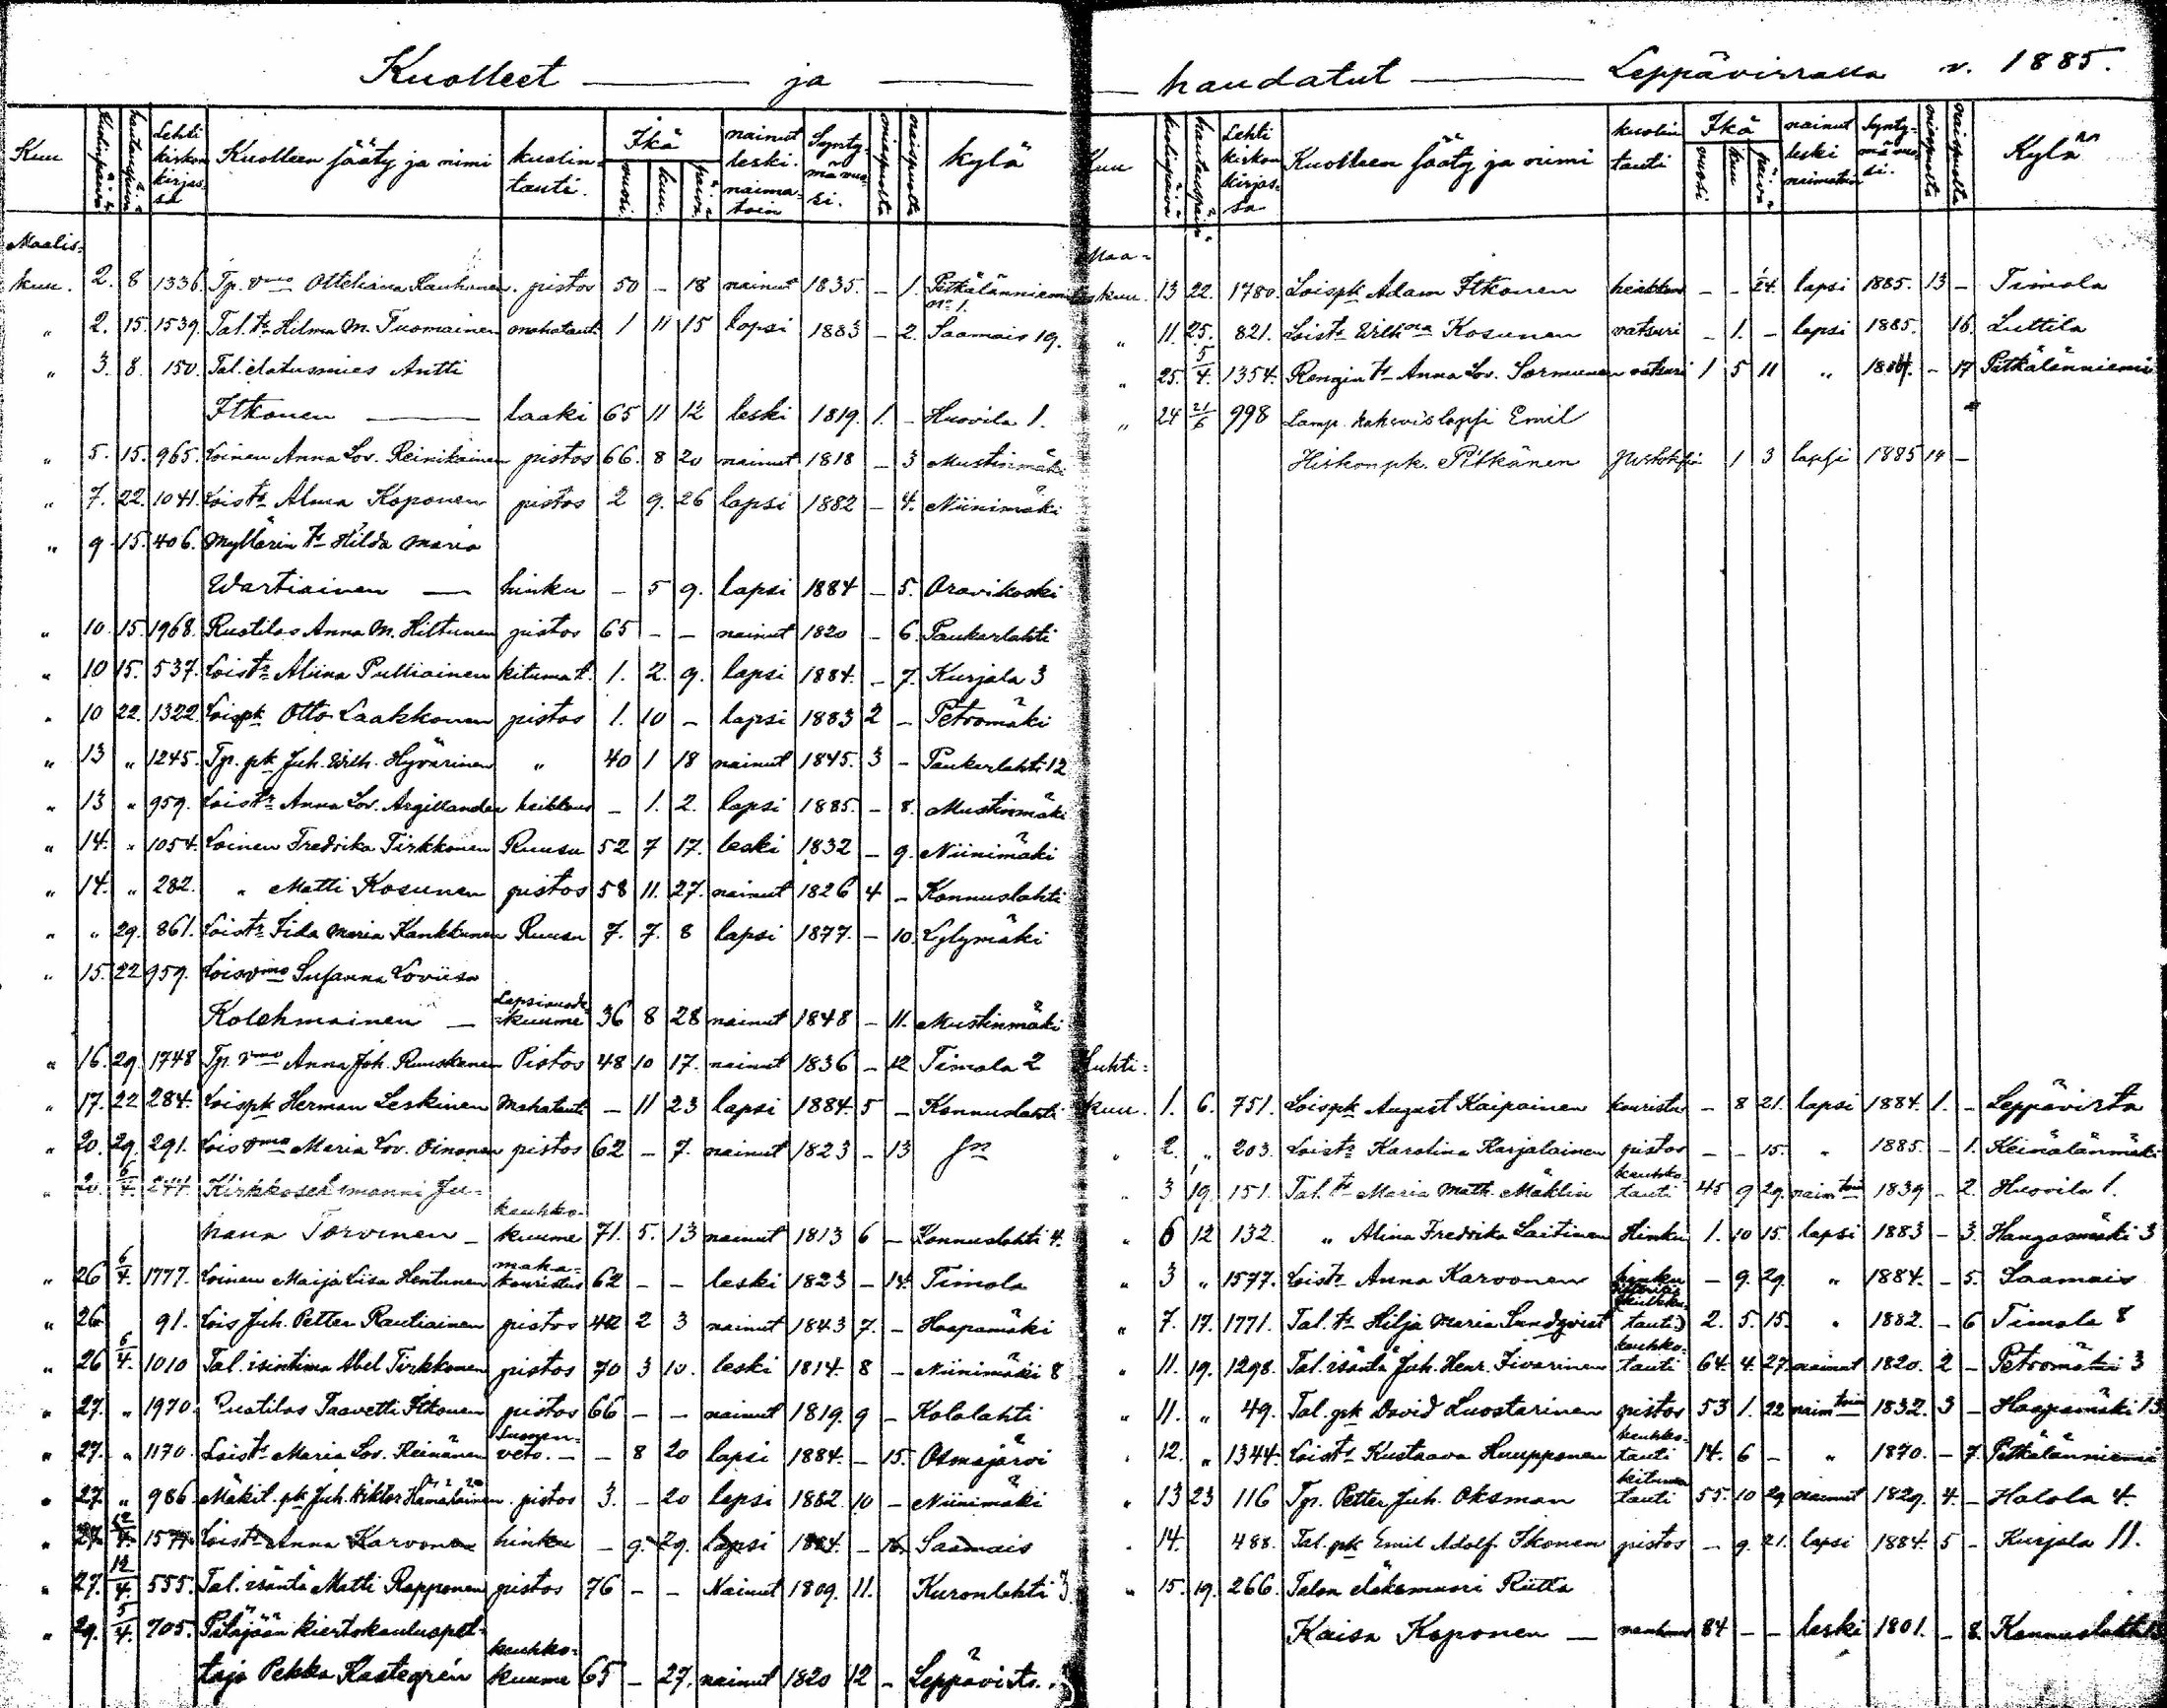 Kuolleet — ja —
Kuu kuolinpäivä hautauspäivä Lehti kirkonkirjassa Kuolleen sääty ja nimi kuolintauti. Ikä vuosi kuu päivä nainut leski naimatoin Syntymävuosi. miespuolta naispuolta kylä
Maalis-
kuu. 2. 8 1336. Tp. vmo Otteliana Kauhanen. pistos 50 – 18 nainut 1835. – 1. Pitkälänniemi
No 1.
„ 2. 15. 1539. Tal. tr Hilma M. Tuomainen mahataut 1 11 15 lapsi 1883 – 2. Saamais 19.
„ 3. 8. 150. Tal. elatusmies Antti
Itkonen — laaki 65 11 12 leski 1819. 1. – Huovila 1.
„ 5. 15. 965. Loinen Anna Lov. Reinikainen pistos 66. 8 20 nainut 1818 – 3 Mustinmäki
„ 7. 22. 1041. Lois tr Alma Koponen pistos 2 9. 26 lapsi 1882 – 4. Niinimäki
„ 9. 15. 406. Myllärin tr Hilda Maria
Wartiainen — hinku – 5 9. lapsi 1884 – 5. Oravikoski
„ 10. 15. 1968. Ruotilas Anna M. Hiltunen pistos 65 – – nainut 1820 – 6. Paukarlahti
„ 10 15. 537. Lois tr Aliina Pulliainen kituma t. 1. 2. 9. lapsi 1884. – 7. Kurjala 3
„ 10 22. 1322. Lois pk Otto Laakkonen pistos 1. 10 – lapsi 1883 2 – Petromäki
„ 13 „ 1245. Tp. pk Juh. Wilh. Hyvärinen „ 40 1 18 nainut 1845. 3 – Paukarlahti 12
„ 13 „ 959. Lois tr Anna Lov. Argillander heikkous – 1. 2. lapsi 1885. – 8. Mustinmäki
„ 14. „ 1054. Loinen Fredrika Tirkkonen Ruusu 52 7 17. leski 1832 – 9. Niinimäki
„ 14. „ 282. „ Matti Kosunen pistos 58 11. 27. nainut 1826 4 – Konnuslahti
„ „ 29. 861. Lois tr Iida Maria Kankkunen Ruusu 7. 7. 8 lapsi 1877. – 10. Lylymäki
„ 15. 22 959. Lois vmo Susanna Loviisa
Kolehmainen — Lapsivuode-kuume 36 8 28 nainut 1848 – 11. Mustinmäki
„ 16. 29. 1748 Tp. vmo Anna Joh. Ruuskanen Pistos 48 10 17. nainut 1836 – 12 Timola 2
„ 17. 22 284. Lois pk Herman Leskinen Mahataut – 11 23 lapsi 1884. 5 – Konnuslahti
„ 20. 29. 291. Lois vmo Maria Lov. Oinonen pistos 62 – 7. nainut 1823 – 13
„ 20. 6/4. 244. Kirkkoseh manni Ju-
hana Torvinen – keuhko-kuume 71. 5. 13 nainut 1813 6 – Konnuslahti 4.
„ 26 6/4. 1777. Loinen Maija Lisa Hentunen maha-kouristus 62 – – leski 1823 – 14. Timola
„ 26 91. Lois Juh. Petter Rautiainen pistos 42 2 3 nainut 1843 7. – Haapamäki
„ 26 6/4. 1010 Tal. isintimä Abel Tirkkonen pistos 70 3 10. leski 1814. 8 – Niinimäki 8
„ 27. „ 1970. Ruotilas Taavetti Itkonen pistos 66 – – nainut 1819. 9 – Kolalahti
„ 27. „ 1170. Lois tr Maria Lov. Keinänen Suonen-veto. – – 8 20 lapsi 1884. – 15. Osmajärvi
„ 27. „ 986. Mäkit. pk Juh. Wiktor Hämäläinen. pistos 3. – 20 lapsi 1882. 10 – Niinimäki
„ 27. 12/4. 1577. Lois tr Anna Karvonen hinku – 9. 29. lapsi 1884. – 16. Saamais
„ 27. 12/4. 555. Tal. isäntä Matti Rapponen pistos 76 – – Nainut 1809. 11. Kuronlahti 3.
„ 29. 5/4. 705. Pitäjään kiertokouluopet-
taja Pekka Kastegrén keuhko-kuume 65 – 27. nainut 1820 12 – Leppävirta.
haudatut — Leppävirralla v. 1885.
Kuu kuolinpäivä hautauspäivä Lehti kirkonkirjassa Kuolleen sääty ja nimi kuolintauti Ikä vuosi kuu päivä nainut leski naimatoin Syntymävuosi. miespuolta naispuolta Kylä
Maa-
liskuu. 13 22. 1780. Lois pk Adam Itkonen heikkous – – 24. lapsi 1885. 13 – Timola
„ 11. 25. 821. Lois tr Wilhna Kosunen vatsuri – 1. – lapsi 1885. 16. Luttila
„ 25. 5/4. 1354. Rengin tr Anna Lov. Sormunen vatsuri 1 5 11 „ 1884. – 17 Pitkälänniemi
„ 24 21/6 998 Lamp. Emil
Hiskon pk. Pitkänen 1 3 lapsi 1885 14 –
Huhti-
kuu. 1. 6. 751. Lois pk August Kaipainen kouristus – 8 21. lapsi 1884. 1. – Leppävirta
„ 2. „ 203. Lois tr Karolina Karjalainen pistos – – 15. „ 1885. – 1. Keinälänmäki
„ 3 19. 151. Tal. tr Maria Math. Mäklin keuhko-tauti 45 9 29. naimtoin 1839 – 2. Huovila 1.
„ 6 12 132. „ Alina Fredrika Laitinen Hinku 1. 10 15. lapsi 1883 – 3. Hangasmäki 3
„ 3 „ 1577. Lois tr Anna Karvonen hinku – 9. 29. „ 1884. – 5. Saamais
„ 7. 17. 1771. Tal. tr Hilja Maria Sundqvist tauti) 2. 5. 15. „ 1882. – 6 Timola 8
„ 11. 19. 1298. Tal. isäntä Juh. Henr. Iivarinen keuhko-tauti 64. 4. 27. nainut 1820. 2 – Petromäki 3
„ 11. „ 49. Tal. pk David Luostarinen pistos 53 1. 22 naimtoin 1832. 3 – Haapamäki 13
„ 12. „ 1344. Lois tr Kustaava Huupponen keuhko-tauti 14. 6 – „ 1870. – 7. Pitkälänniemi
„ 13 23 116 Tp. Petter Juh. Oksman kituma tauti 55. 10 29 nainut 1829. 4. – Halola 4.
„ 14. 488. Tal. pk Emil Adolf Ikonen pistos – 9. 21. lapsi 1884. 5 – Kurjala 11.
„ 15. 19. 266. Talon eläkemuori Riitta
Kaisa Koponen — vanhuus 84 – – leski 1801. – 8. Konnuslahti 13